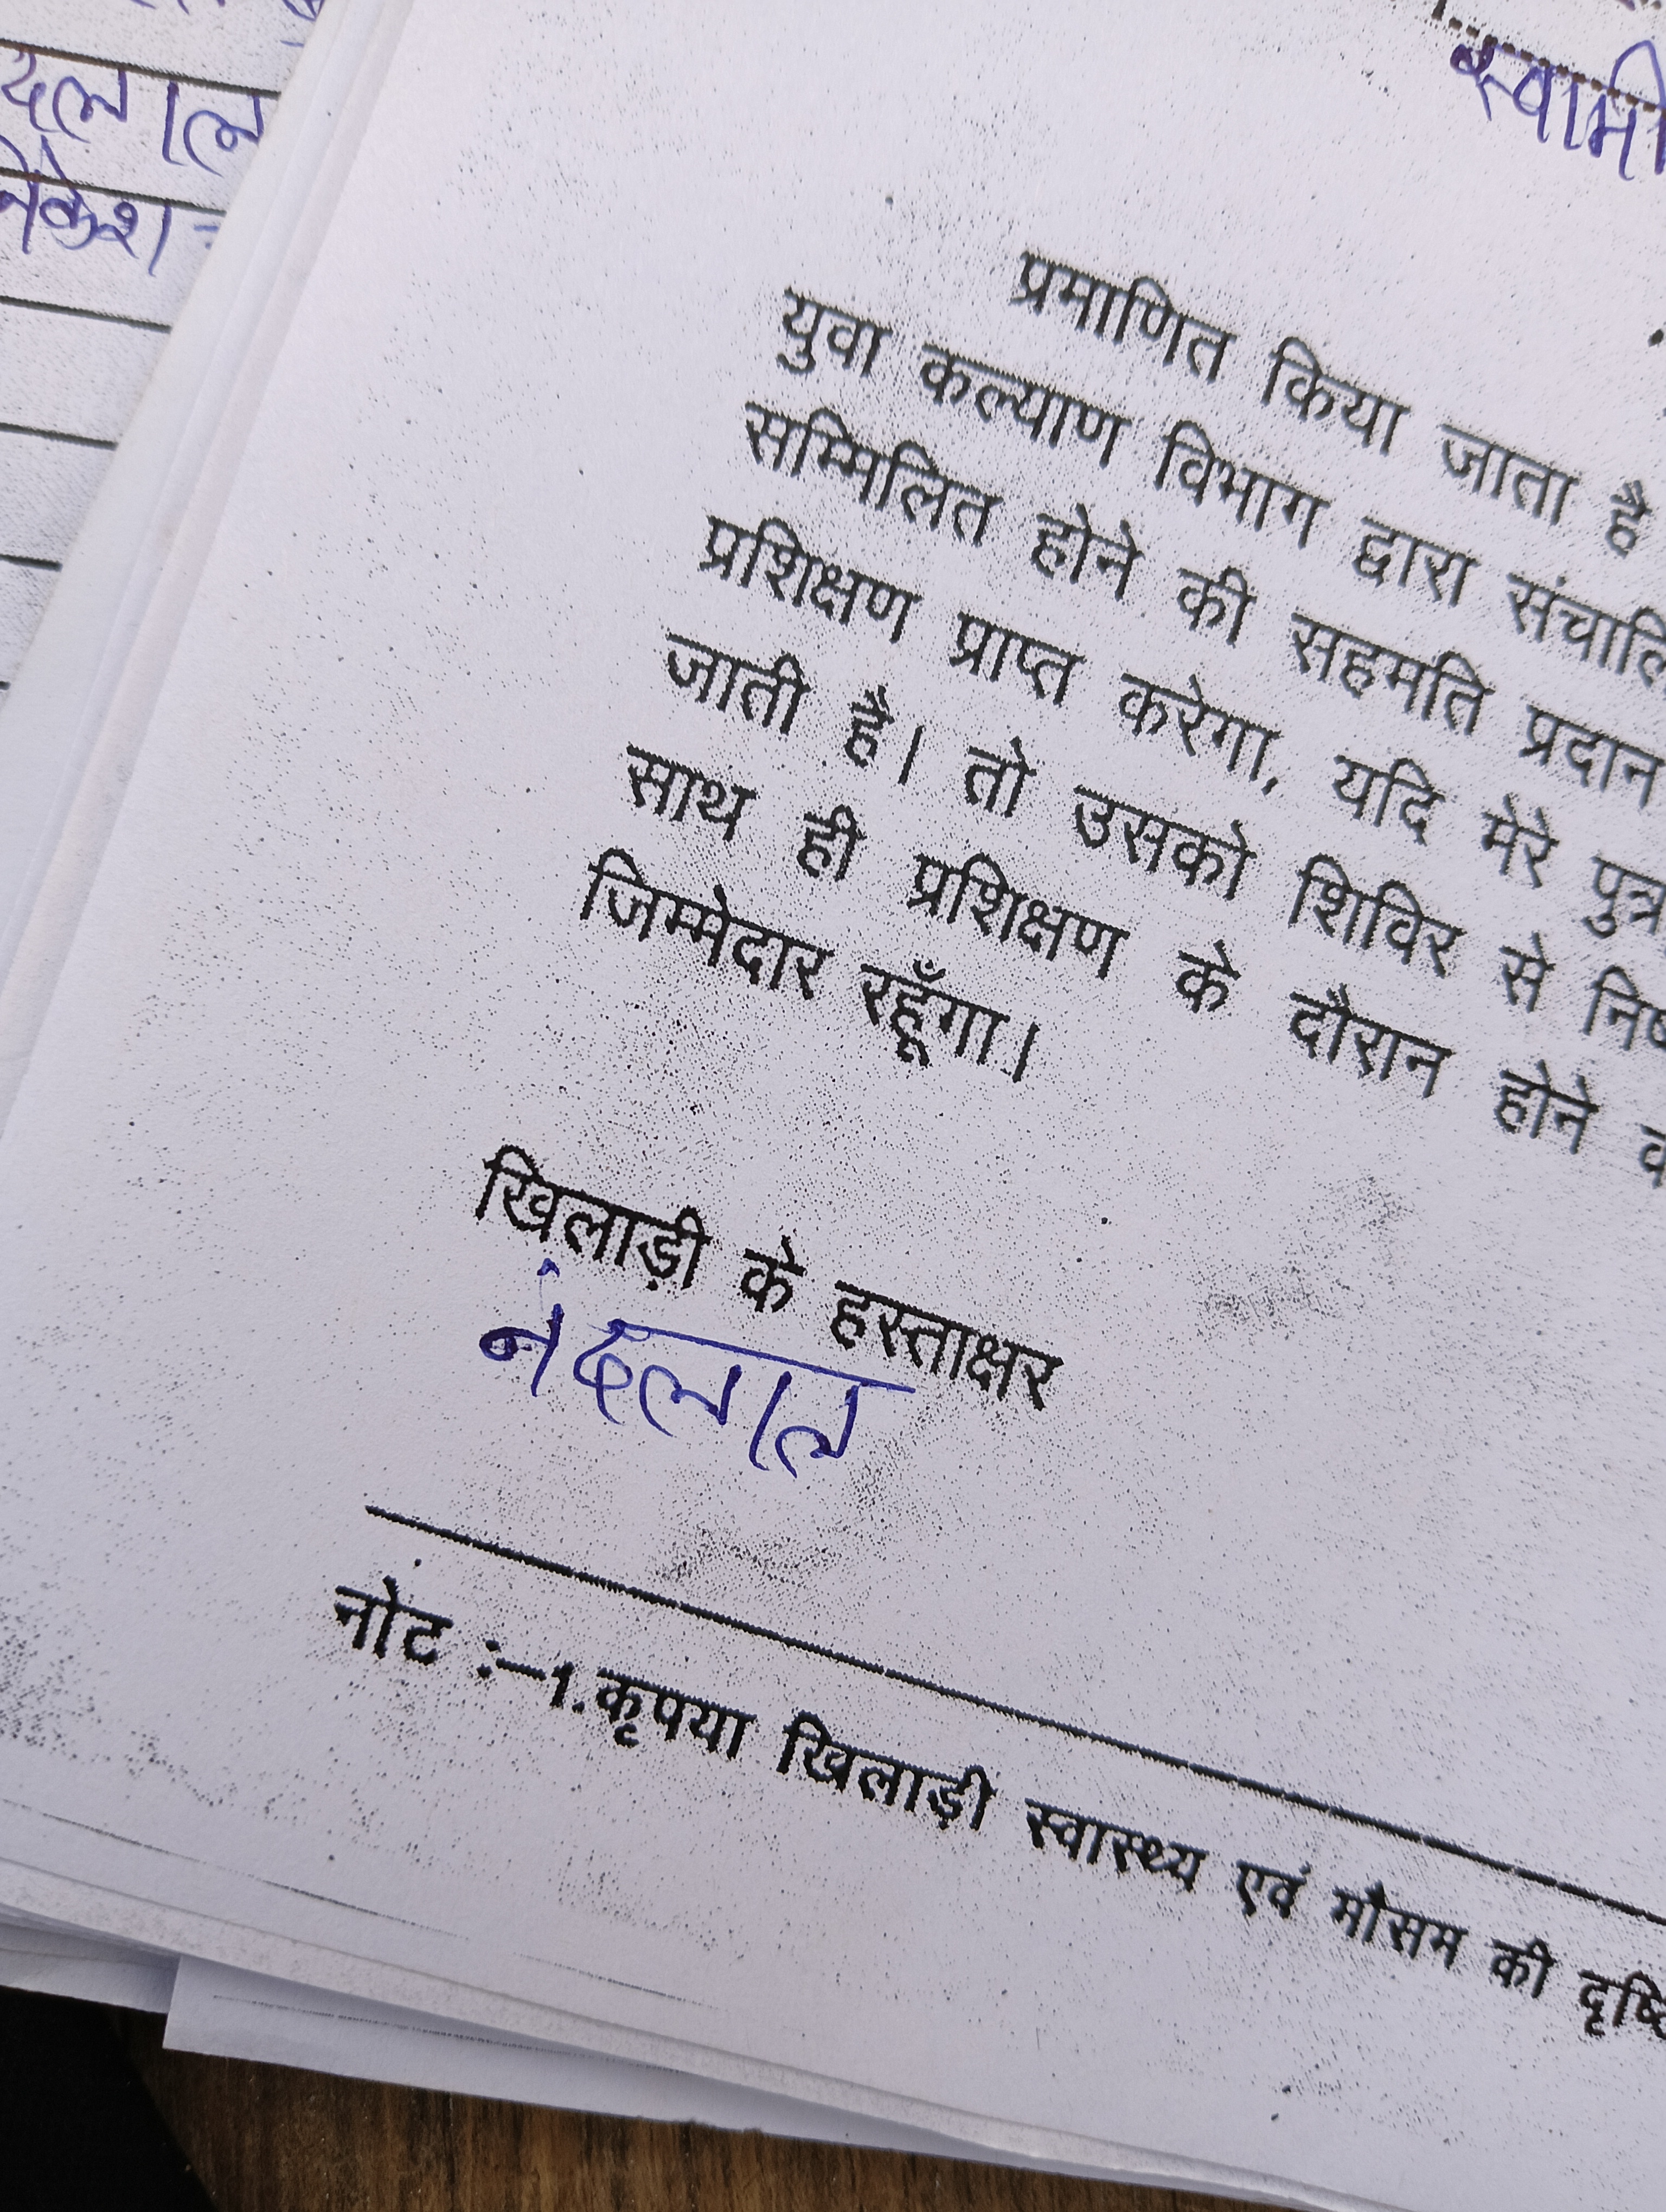 दलाल
स्वामी
प्रमाणित किया जाता है
युवा कल्याण विभाग द्वारा
सम्मिलित होने की सहमति प्रदान
प्रशिक्षण प्राप्त करेगा, यदि मेरे पुत्र
जाती है। तो उसको शिविर से
साथ ही प्रशिक्षण के दौरान होने
जिम्मेदार रहूँगा।
खिलाड़ी के हस्ताक्षर
नंदलाल
नोट :–1.कृपया खिलाड़ी स्वास्थ्य एवं मौसम की